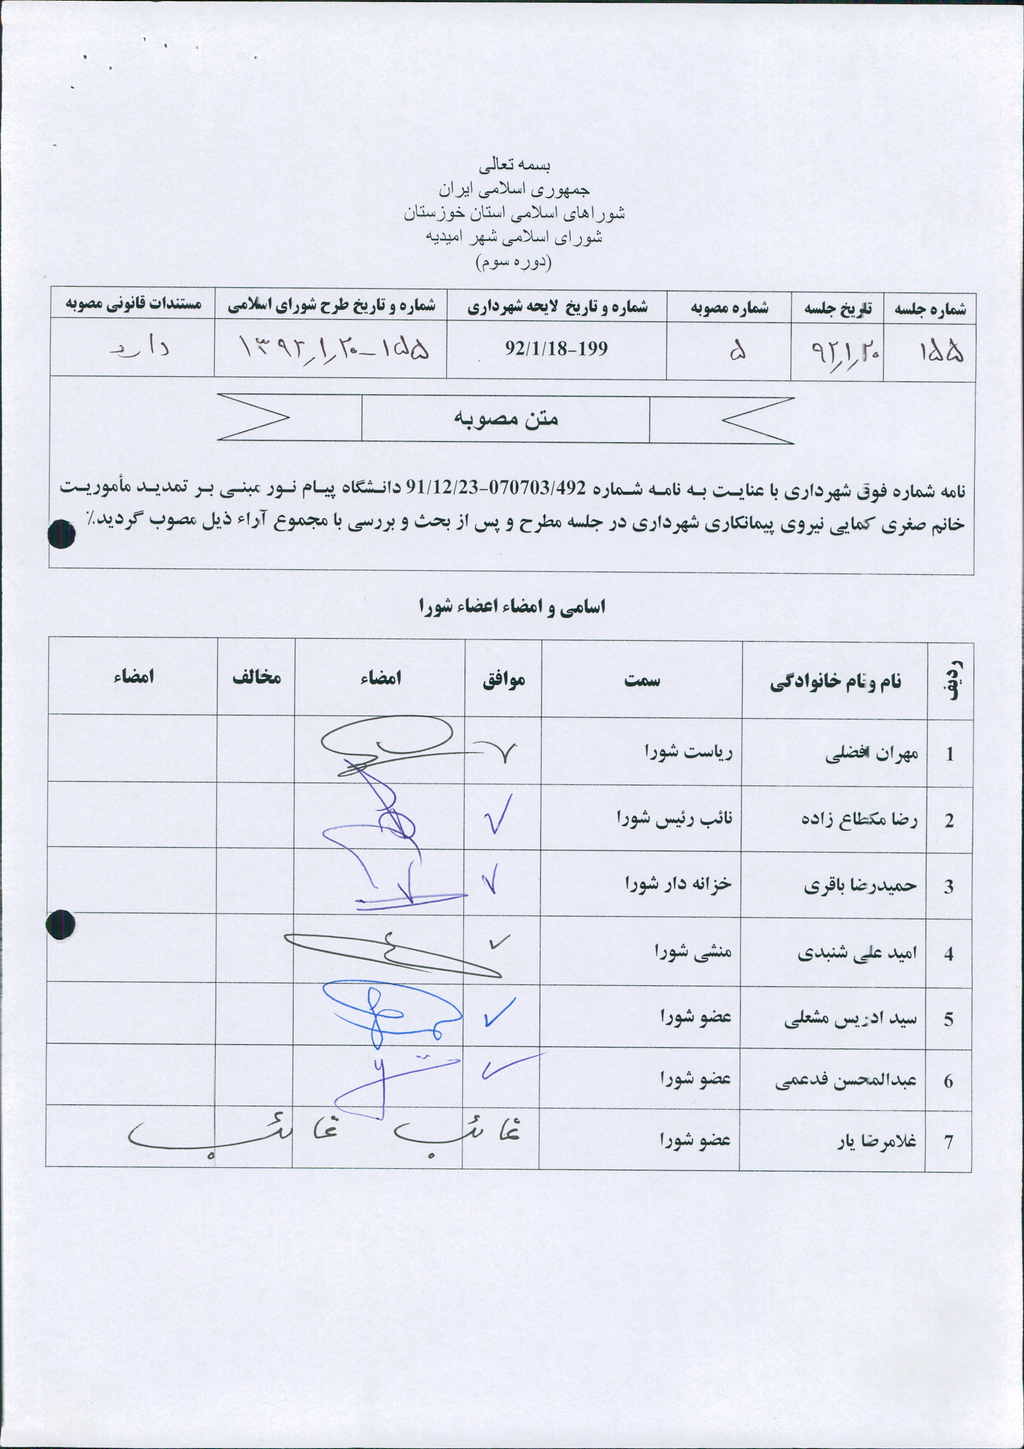 بسمه تعالی
جمهوری اسلامی ایران
شوراهای اسلامی استان خوزستان
شورای اسلامی شهر امیدیه
(دوره سوم)
شماره جلسه تاریخ جلسه شماره مصوبه شماره و تاریخ لایحه شهرداری شماره و تاریخ طرح شورای اسلامی مستندات قانونی مصوبه
۱۵۵ ۹۲/۱/۲۰ ۵ 92/1/18-199 ۱۵۵-۱۳۹۲/۱/۲۰ دارد
متن مصوبه
نامه شماره فوق شهرداری با عنایت به نامه شماره 91/12/23-070703/492 دانشگاه پیام نور مبنی بر تمدید مأموریت
خانم صغری کمایی نیروی پیمانکاری شهرداری در جلسه مطرح و پس از بحث و بررسی با مجموع آراء ذیل مصوب گردید./
اسامی و امضاء اعضاء شورا
ردیف نام و نام خانوادگی سمت موافق امضاء مخالف امضاء
1 مهران افضلی ریاست شورا ✓
2 رضا مکطاع زاده نائب رئیس شورا ✓
3 حمیدرضا باقری خزانه دار شورا ✓
4 امید علی شنبدی منشی شورا ✓
5 سید ادریس مشعلی عضو شورا ✓
6 عبدالمحسن فدعمی عضو شورا ✓
7 غلامرضا یار عضو شورا غائب غائب